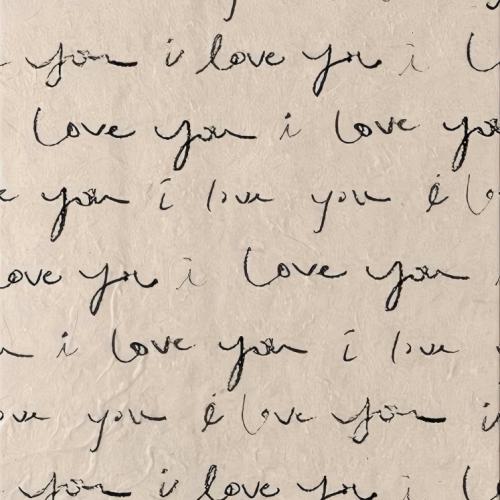 you i love you i
love you i love you
you i love you i
love you i love you
i love you i love
you i love you i
you i love you i